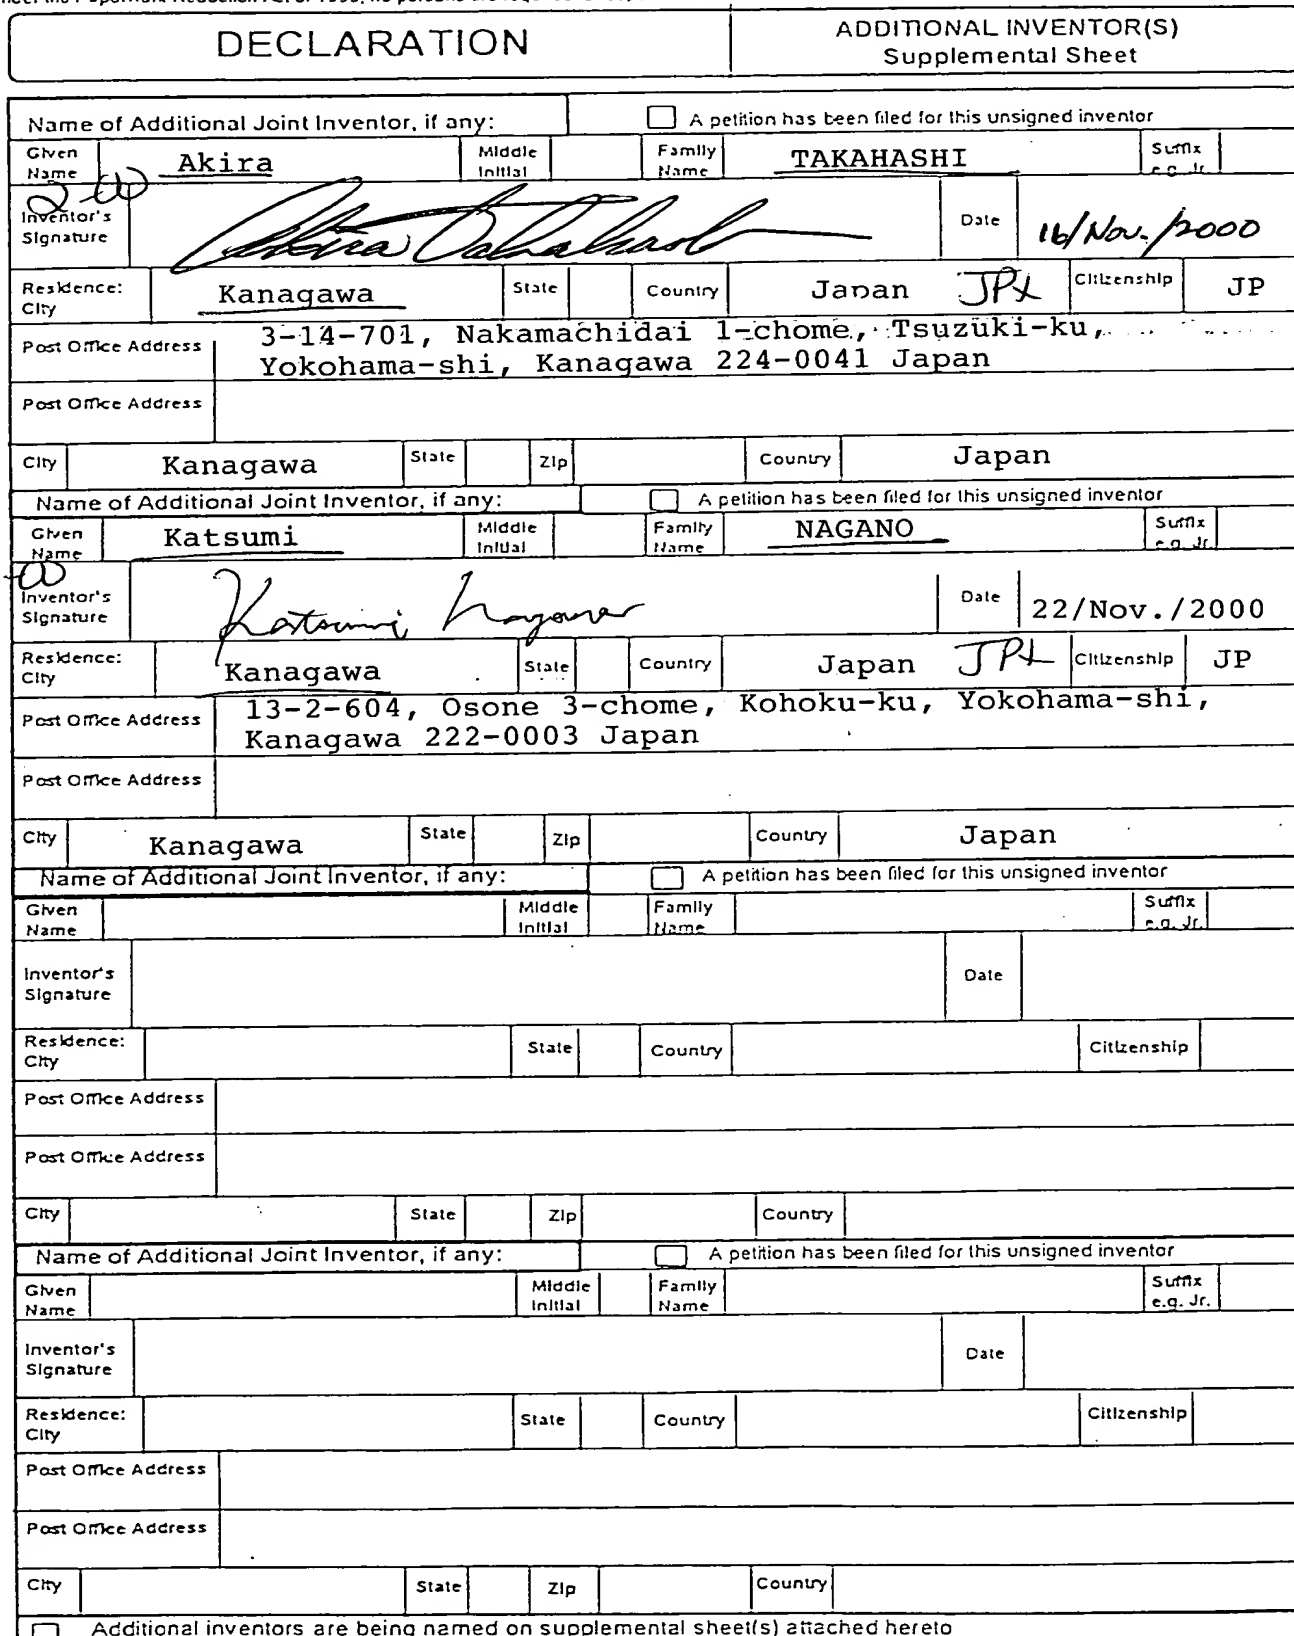 DECLARATION
ADDITIONAL INVENTOR(S)
Supplemental Sheet
Name of Additional Joint Inventor, if any:
A petition has been filed for this unsigned inventor
Given Name Akira Middle Initial Family Name TAKAHASHI Suffix e.g. Jr.
Inventor's Signature Akira Takahashi Date 16/Nov./2000
Residence: City Kanagawa State Country Japan JPX Citizenship JP
Post Office Address 3-14-701, Nakamachidai 1-chome, Tsuzuki-ku,
Yokohama-shi, Kanagawa 224-0041 Japan
Post Office Address
City Kanagawa State Zip Country Japan
Name of Additional Joint Inventor, if any:
A petition has been filed for this unsigned inventor
Given Name Katsumi Middle Initial Family Name NAGANO Suffix e.g. Jr.
Inventor's Signature Katsumi Nagano Date 22/Nov./2000
Residence: City Kanagawa State Country Japan JPX Citizenship JP
Post Office Address 13-2-604, Osone 3-chome, Kohoku-ku, Yokohama-shi,
Kanagawa 222-0003 Japan
Post Office Address
City Kanagawa State Zip Country Japan
Name of Additional Joint Inventor, if any:
A petition has been filed for this unsigned inventor
Given Name Middle Initial Family Name Suffix e.g. Jr.
Inventor's Signature Date
Residence: City State Country Citizenship
Post Office Address
Post Office Address
City State Zip Country
Name of Additional Joint Inventor, if any:
A petition has been filed for this unsigned inventor
Given Name Middle Initial Family Name Suffix e.g. Jr.
Inventor's Signature Date
Residence: City State Country Citizenship
Post Office Address
Post Office Address
City State Zip Country
Additional inventors are being named on supplemental sheet(s) attached hereto